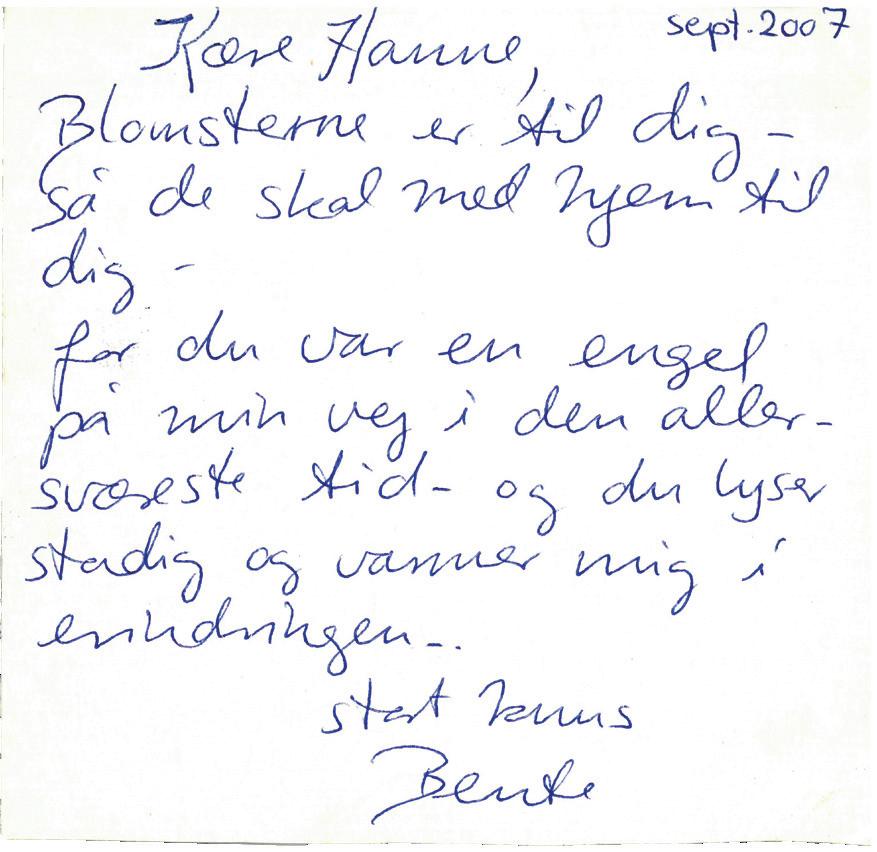 sept. 2007
Kære Hanne,
Blomsterne er til dig -
så de skal med hjem til
dig -
for du var en engel
på min vej i den aller-
sværeste tid - og du lyser
stadig og varmer mig i
erindringen -.
stort knus
Bente